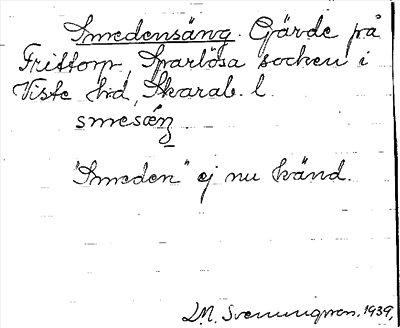 Smedensäng. Gärde på
Frittorp, Sparlösa socken i
Viste hd, Skarab. l.
smesæŋ
"Smeden" ej nu känd.
D.M. Svenungsson. 1939,